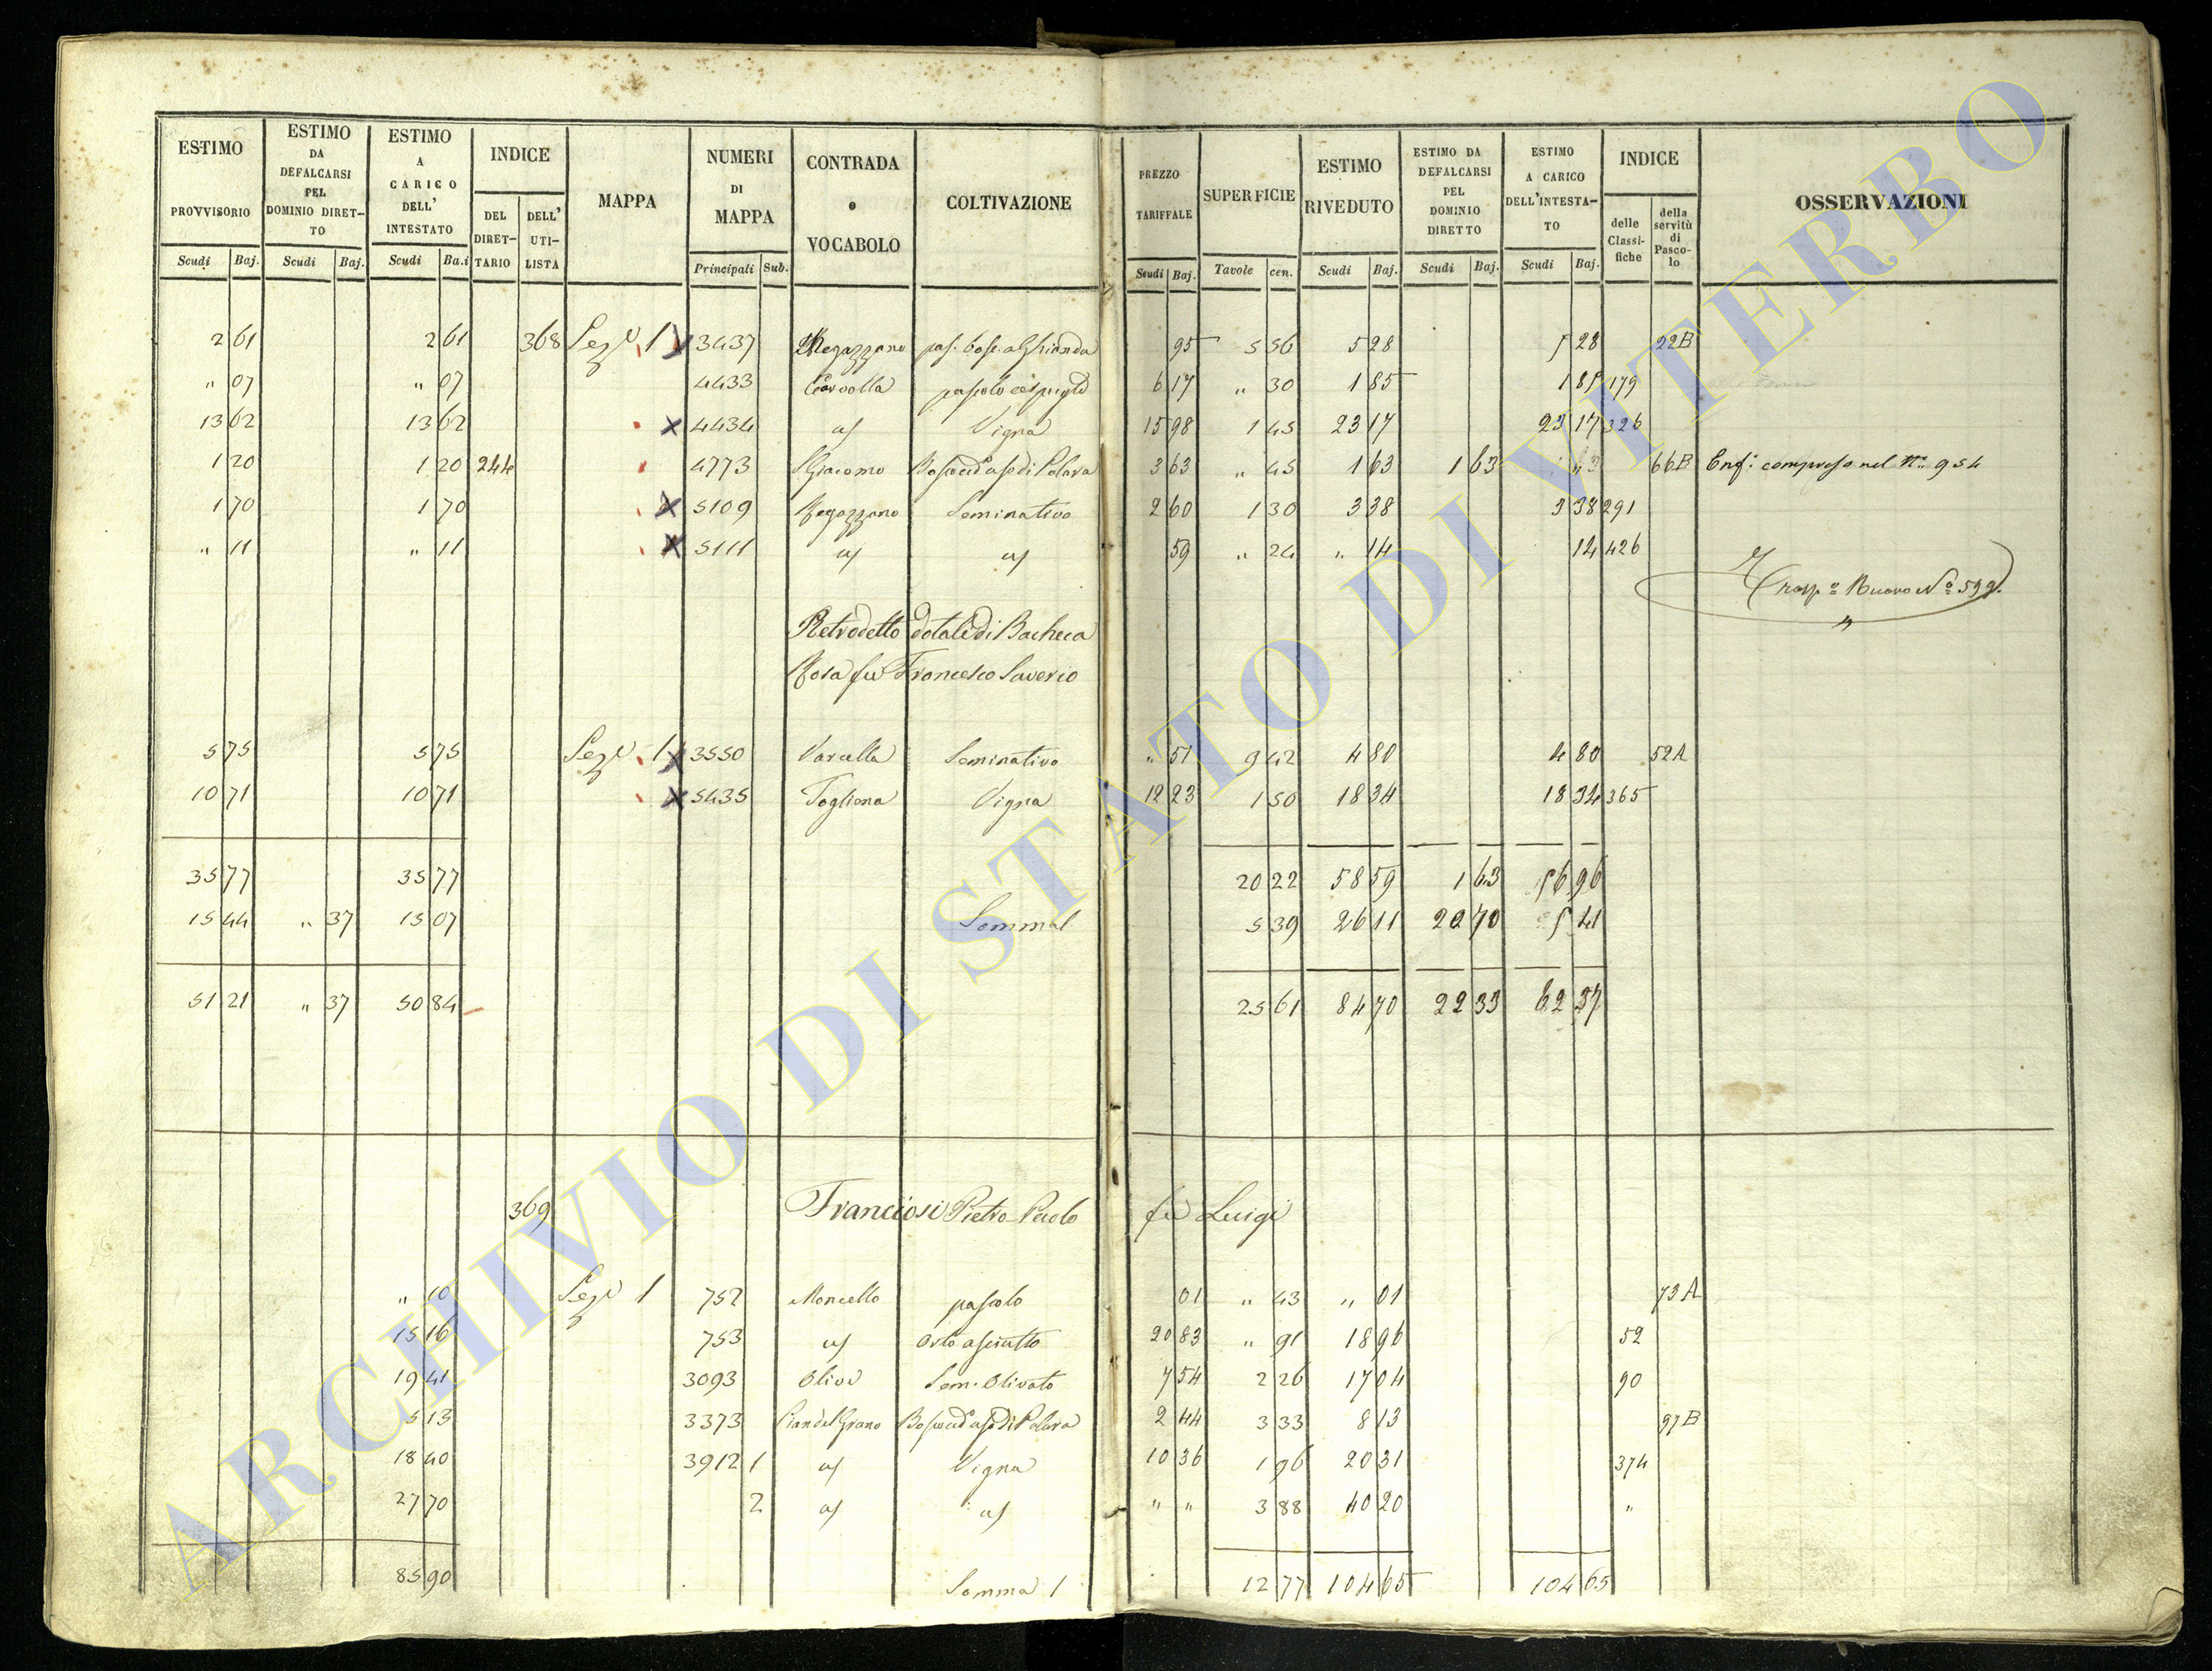 ESTIMO PROVVISORIO Scudi Baj. | ESTIMO DA DEFALCARSI PEL DOMINIO DIRETTO Scudi Baj. | ESTIMO A CARICO DELL' INTESTATO Scudi Ba.i | INDICE DEL DIRETTARIO DELL' UTILISTA | MAPPA | NUMERI DI MAPPA Principali Sub. | CONTRADA o VOCABOLO | COLTIVAZIONE | PREZZO TARIFFALE Scudi Baj. | SUPERFICIE Tavole cen. | ESTIMO RIVEDUTO Scudi Baj. | ESTIMO DA DEFALCARSI PEL DOMINIO DIRETTO Scudi Baj. | ESTIMO A CARICO DELL'INTESTATO Scudi Baj. | INDICE delle Classifiche della servitù di Pascolo | OSSERVAZIONI
2 61 2 61 368 Sez.e 1 3437 Regazzano pas. bosc. a Ghianda 95 5 56 5 28 5 28 22B
" 07 " 07 4433 pascolo cespugl.o 6 17 " 30 1 85 1 85 179
13 62 13 62 4434 Vigna 15 98 1 45 23 17 23 17 326
1 20 1 20 244 4773 S Giacomo 3 63 " 45 1 63 1 63 66B Enf.i compreso nel N.o 954
1 70 1 70 5109 Regazzano Seminativo 2 60 1 30 3 38 3 38 291
" 11 " 11 5111 59 " 24 " 14 14 426
Trasp.o Nuovo N.o 599
Retrodetto dotale di Bacheca
Rosa fu Francesco Saverio
5 75 5 75 Sez.e 1 3550 Varcella Seminativo " 51 9 42 4 80 4 80 52A
10 71 10 71 5435 Togliena Vigna 12 23 1 50 18 34 18 34 365
35 77 35 77 20 22 58 59 1 63 56 96
15 44 " 37 15 07 5 39 26 11 20 70 5 41
51 21 " 37 50 84 25 61 84 70 22 33 62 37
369 Franciosi Pietro Paolo fu Luigi
" 10 Sez.e 1 752 Moncello pascolo 01 " 43 " 01 73A
15 16 753 Orto asciutto 20 83 " 91 18 96 52
19 41 3093 Olivo Sem. Olivato 7 54 2 26 17 04 90
5 13 3373 Pian del Grano 2 44 3 33 8 13 97B
18 40 3912 1 Vigna 10 36 1 96 20 31 374
27 70 2 " " 3 88 40 20 "
85 90 Somma 1 12 77 104 65 104 65
ARCHIVIO DI STATO DI VITERBO